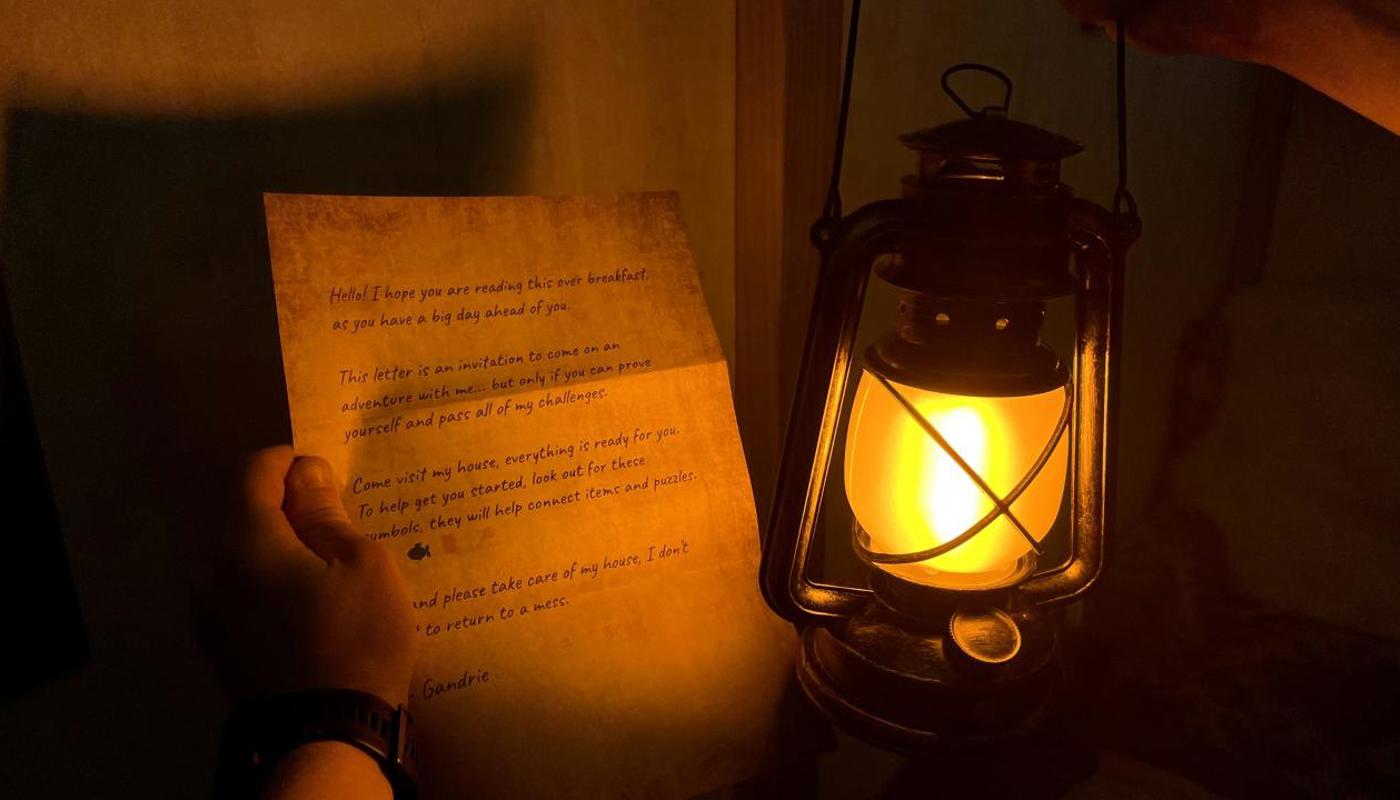 Hello! I hope you are reading this over breakfast,
as you have a big day ahead of you.
This letter is an invitation to come on an
adventure with me... but only if you can prove
yourself and pass all of my challenges.
Come visit my house, everything is ready for you.
To help get you started, look out for these
symbols, they will help connect items and puzzles.
and please take care of my house, I don't
to return to a mess.
Gandrie